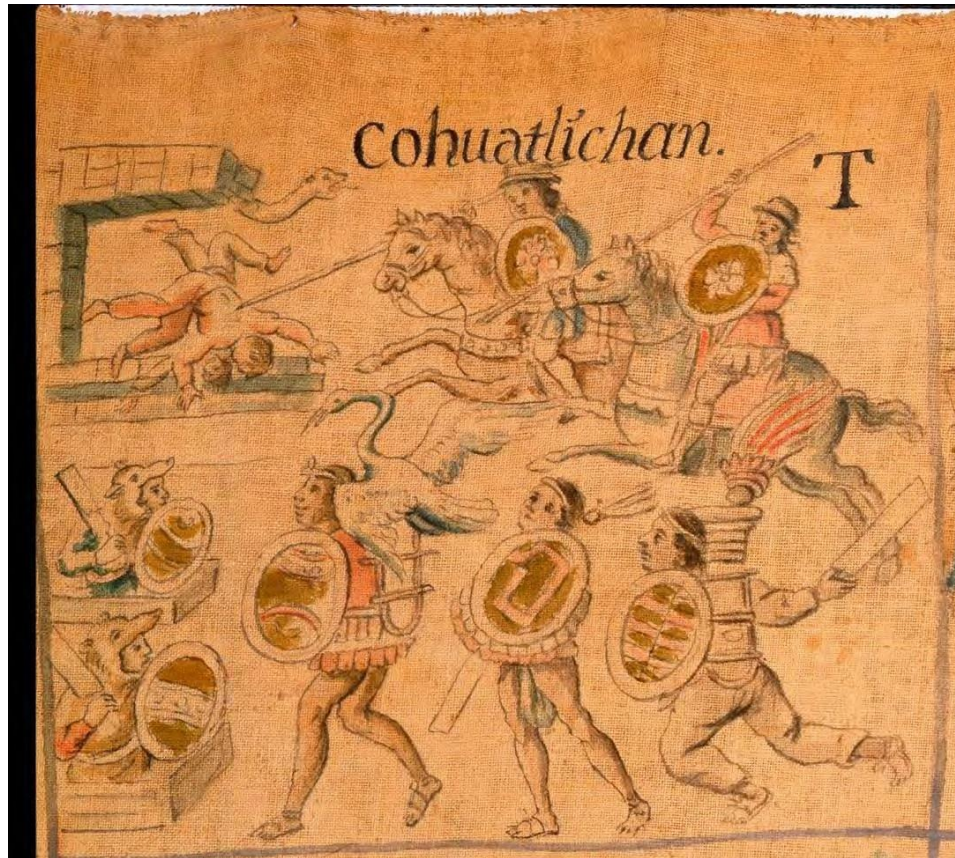 Cohuatlichan.
T